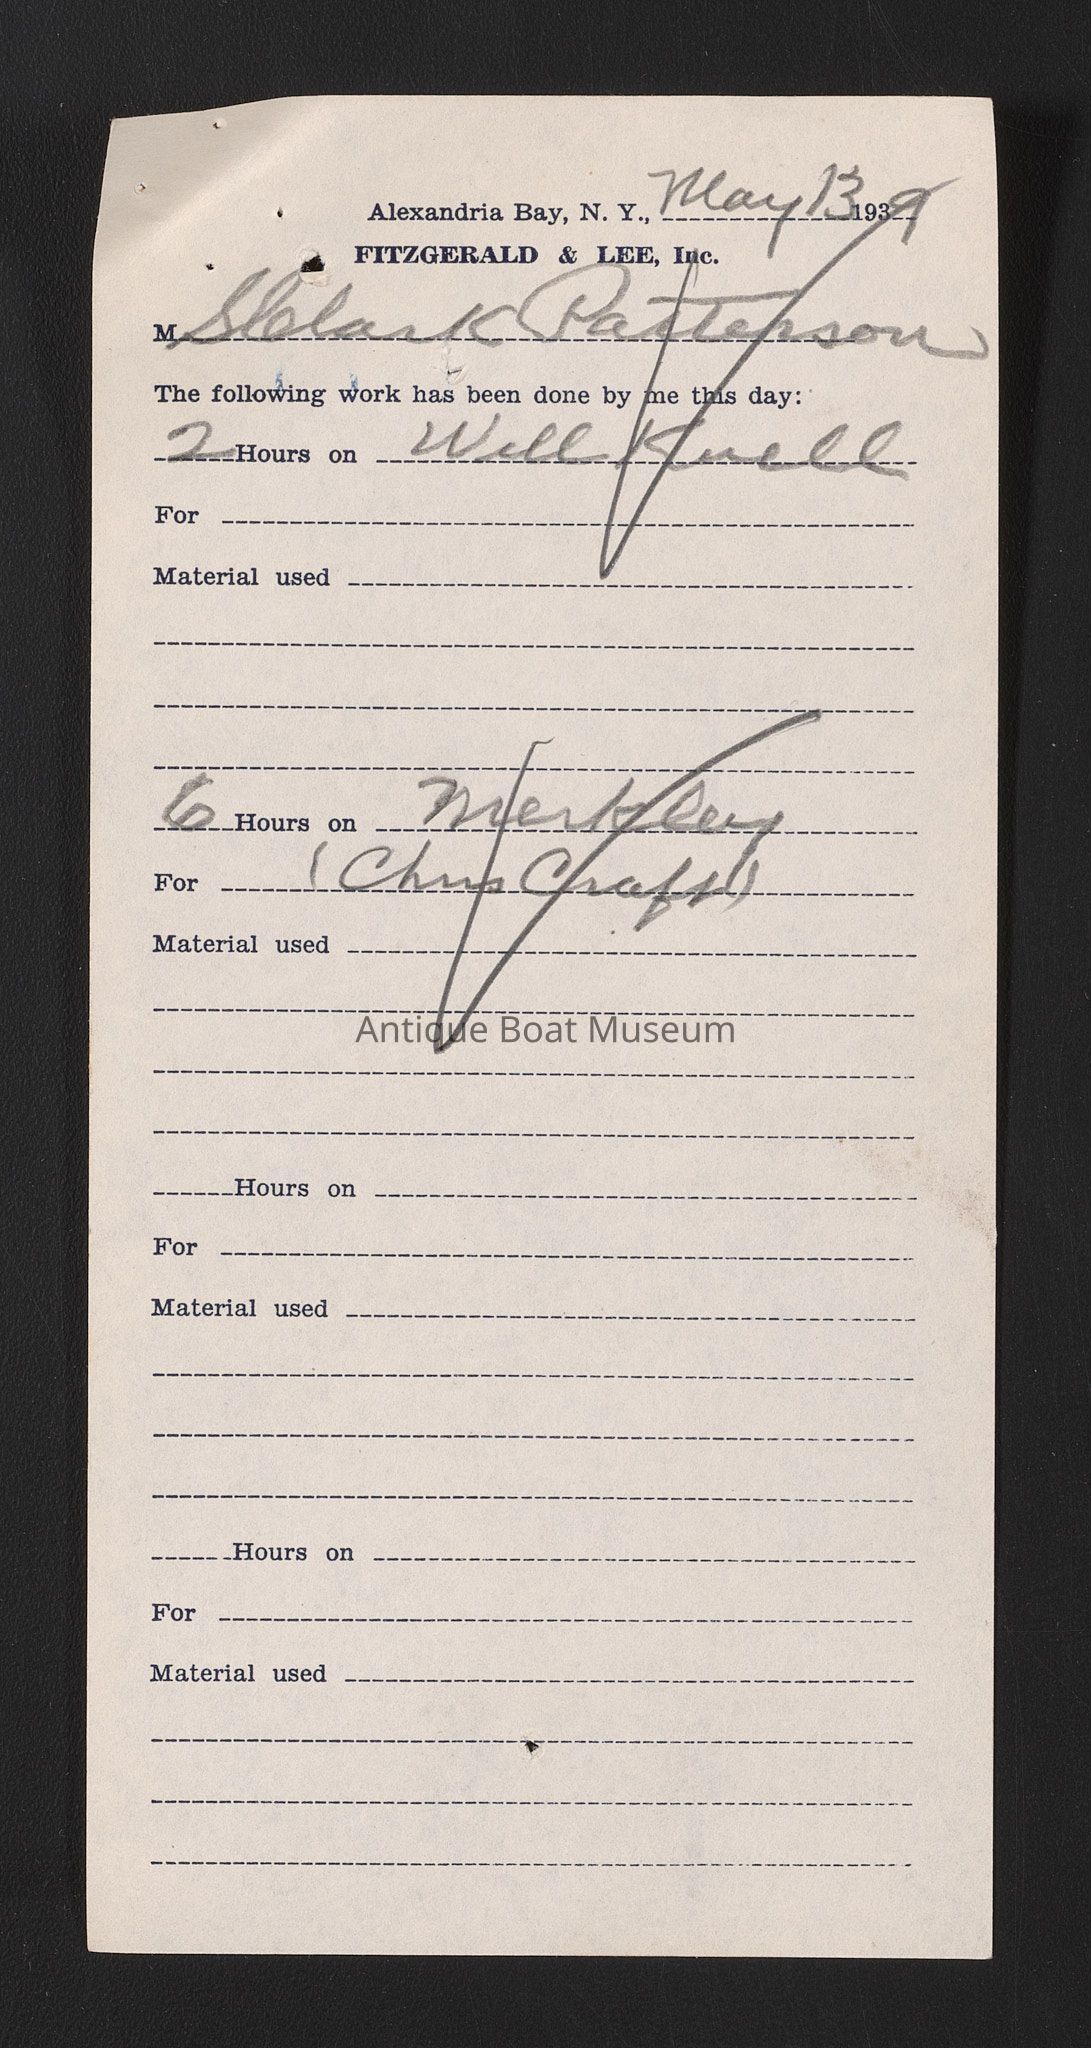 Alexandria Bay, N. Y., May 13 1939
FITZGERALD & LEE, Inc.
M Clark Patterson
The following work has been done by me this day:
2 Hours on Will Knell
For
Material used
6 Hours on Merkley
For (Chris Craft)
Material used
Antique Boat Museum
Hours on
For
Material used
Hours on
For
Material used